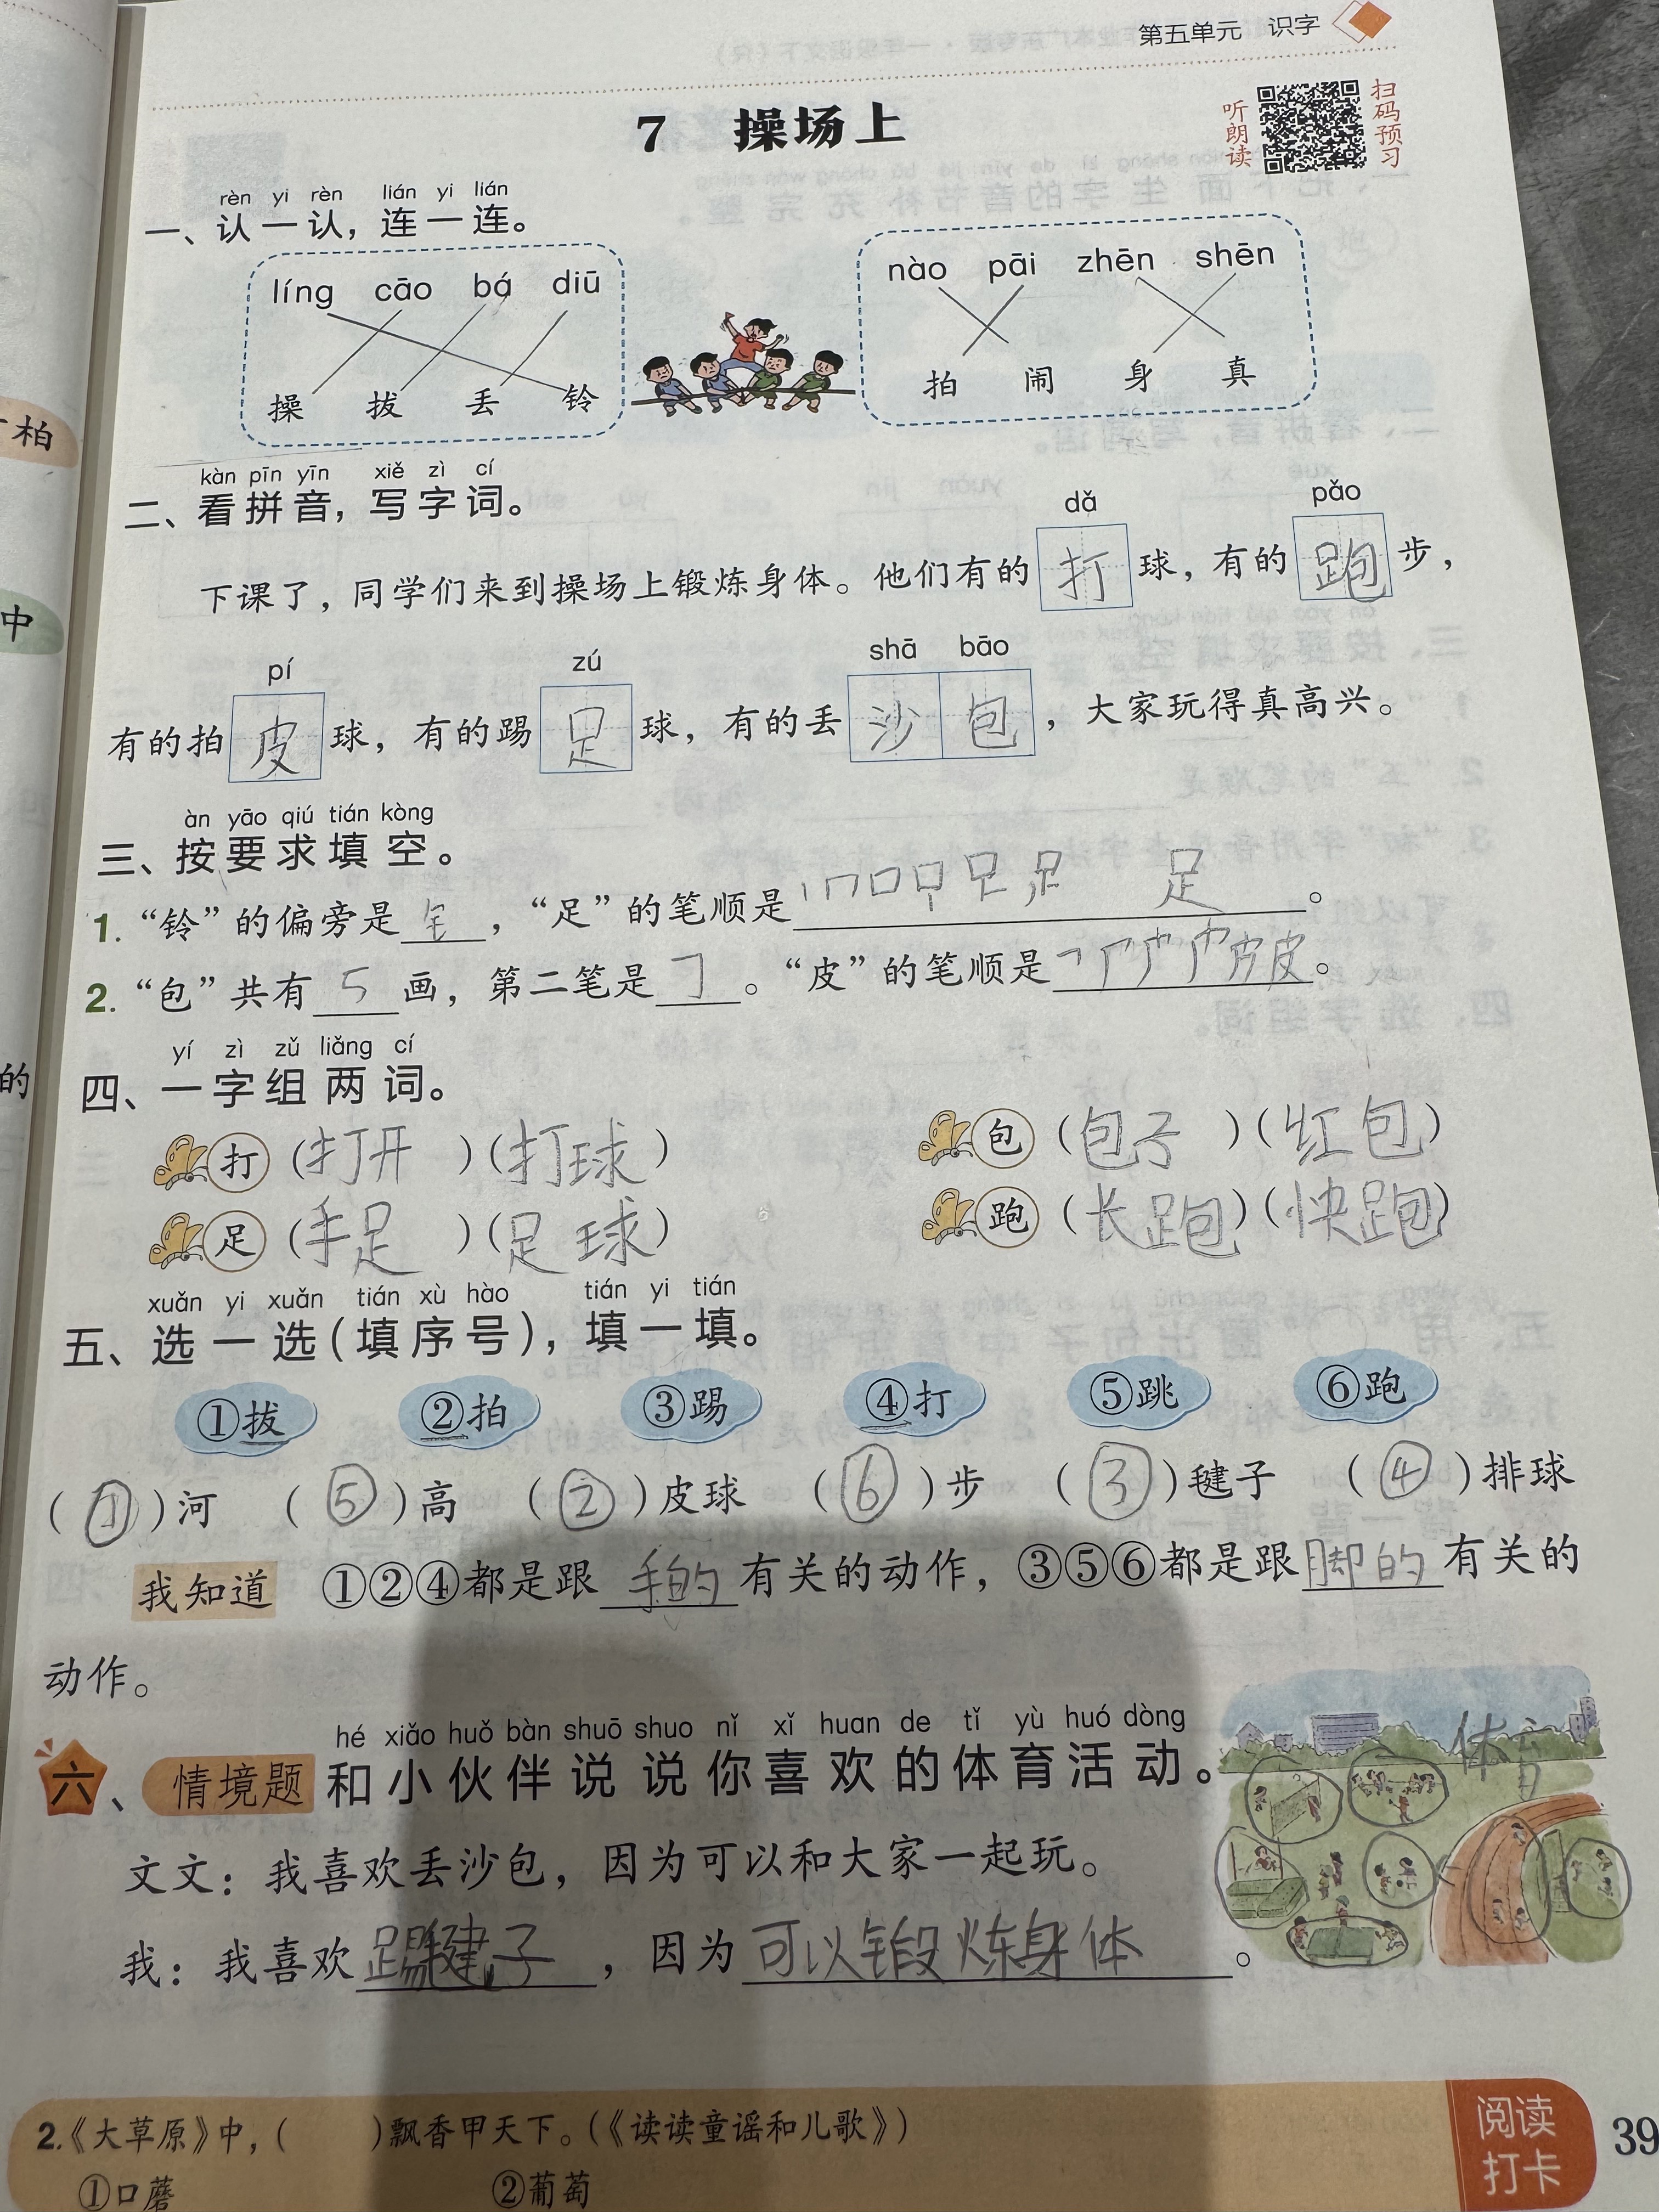 第五单元 识字
7 操场上
听朗读 扫码预习
rèn yi rèn, lián yi lián
一、认一认，连一连。
líng cāo bá diū
操 拔 丢 铃
nào pāi zhēn shēn
拍 闹 身 真
kàn pīn yīn xiě zì cí
二、看拼音，写字词。
dǎ pǎo
下课了，同学们来到操场上锻炼身体。他们有的打球，有的跑步，
pí zú shā bāo
有的拍皮球，有的踢足球，有的丢沙包，大家玩得真高兴。
àn yāo qiú tián kòng
三、按要求填空。
1. “铃”的偏旁是钅，“足”的笔顺是丨 口 足。
2. “包”共有5画，第二笔是㇆。“皮”的笔顺是皮。
yí zì zǔ liǎng cí
四、一字组两词。
打（打开）（打球） 包（包子）（红包）
足（手足）（足球） 跑（长跑）（快跑）
xuǎn yi xuǎn tián xù hào tián yi tián
五、选一选（填序号），填一填。
①拔 ②拍 ③踢 ④打 ⑤跳 ⑥跑
（①）河 （⑤）高 （②）皮球 （⑥）步 （③）毽子 （④）排球
我知道 ①②④都是跟手的有关的动作，③⑤⑥都是跟脚的有关的
动作。
hé xiǎo huǒ bàn shuō shuo nǐ xǐ huan de tǐ yù huó dòng
六、情境题 和小伙伴说说你喜欢的体育活动。
体育
文文：我喜欢丢沙包，因为可以和大家一起玩。
我：我喜欢踢毽子，因为可以锻炼身体。
2.《大草原》中，（ ）飘香甲天下。（《读读童谣和儿歌》）
①口蘑 ②葡萄
阅读打卡
39
柏
中
的